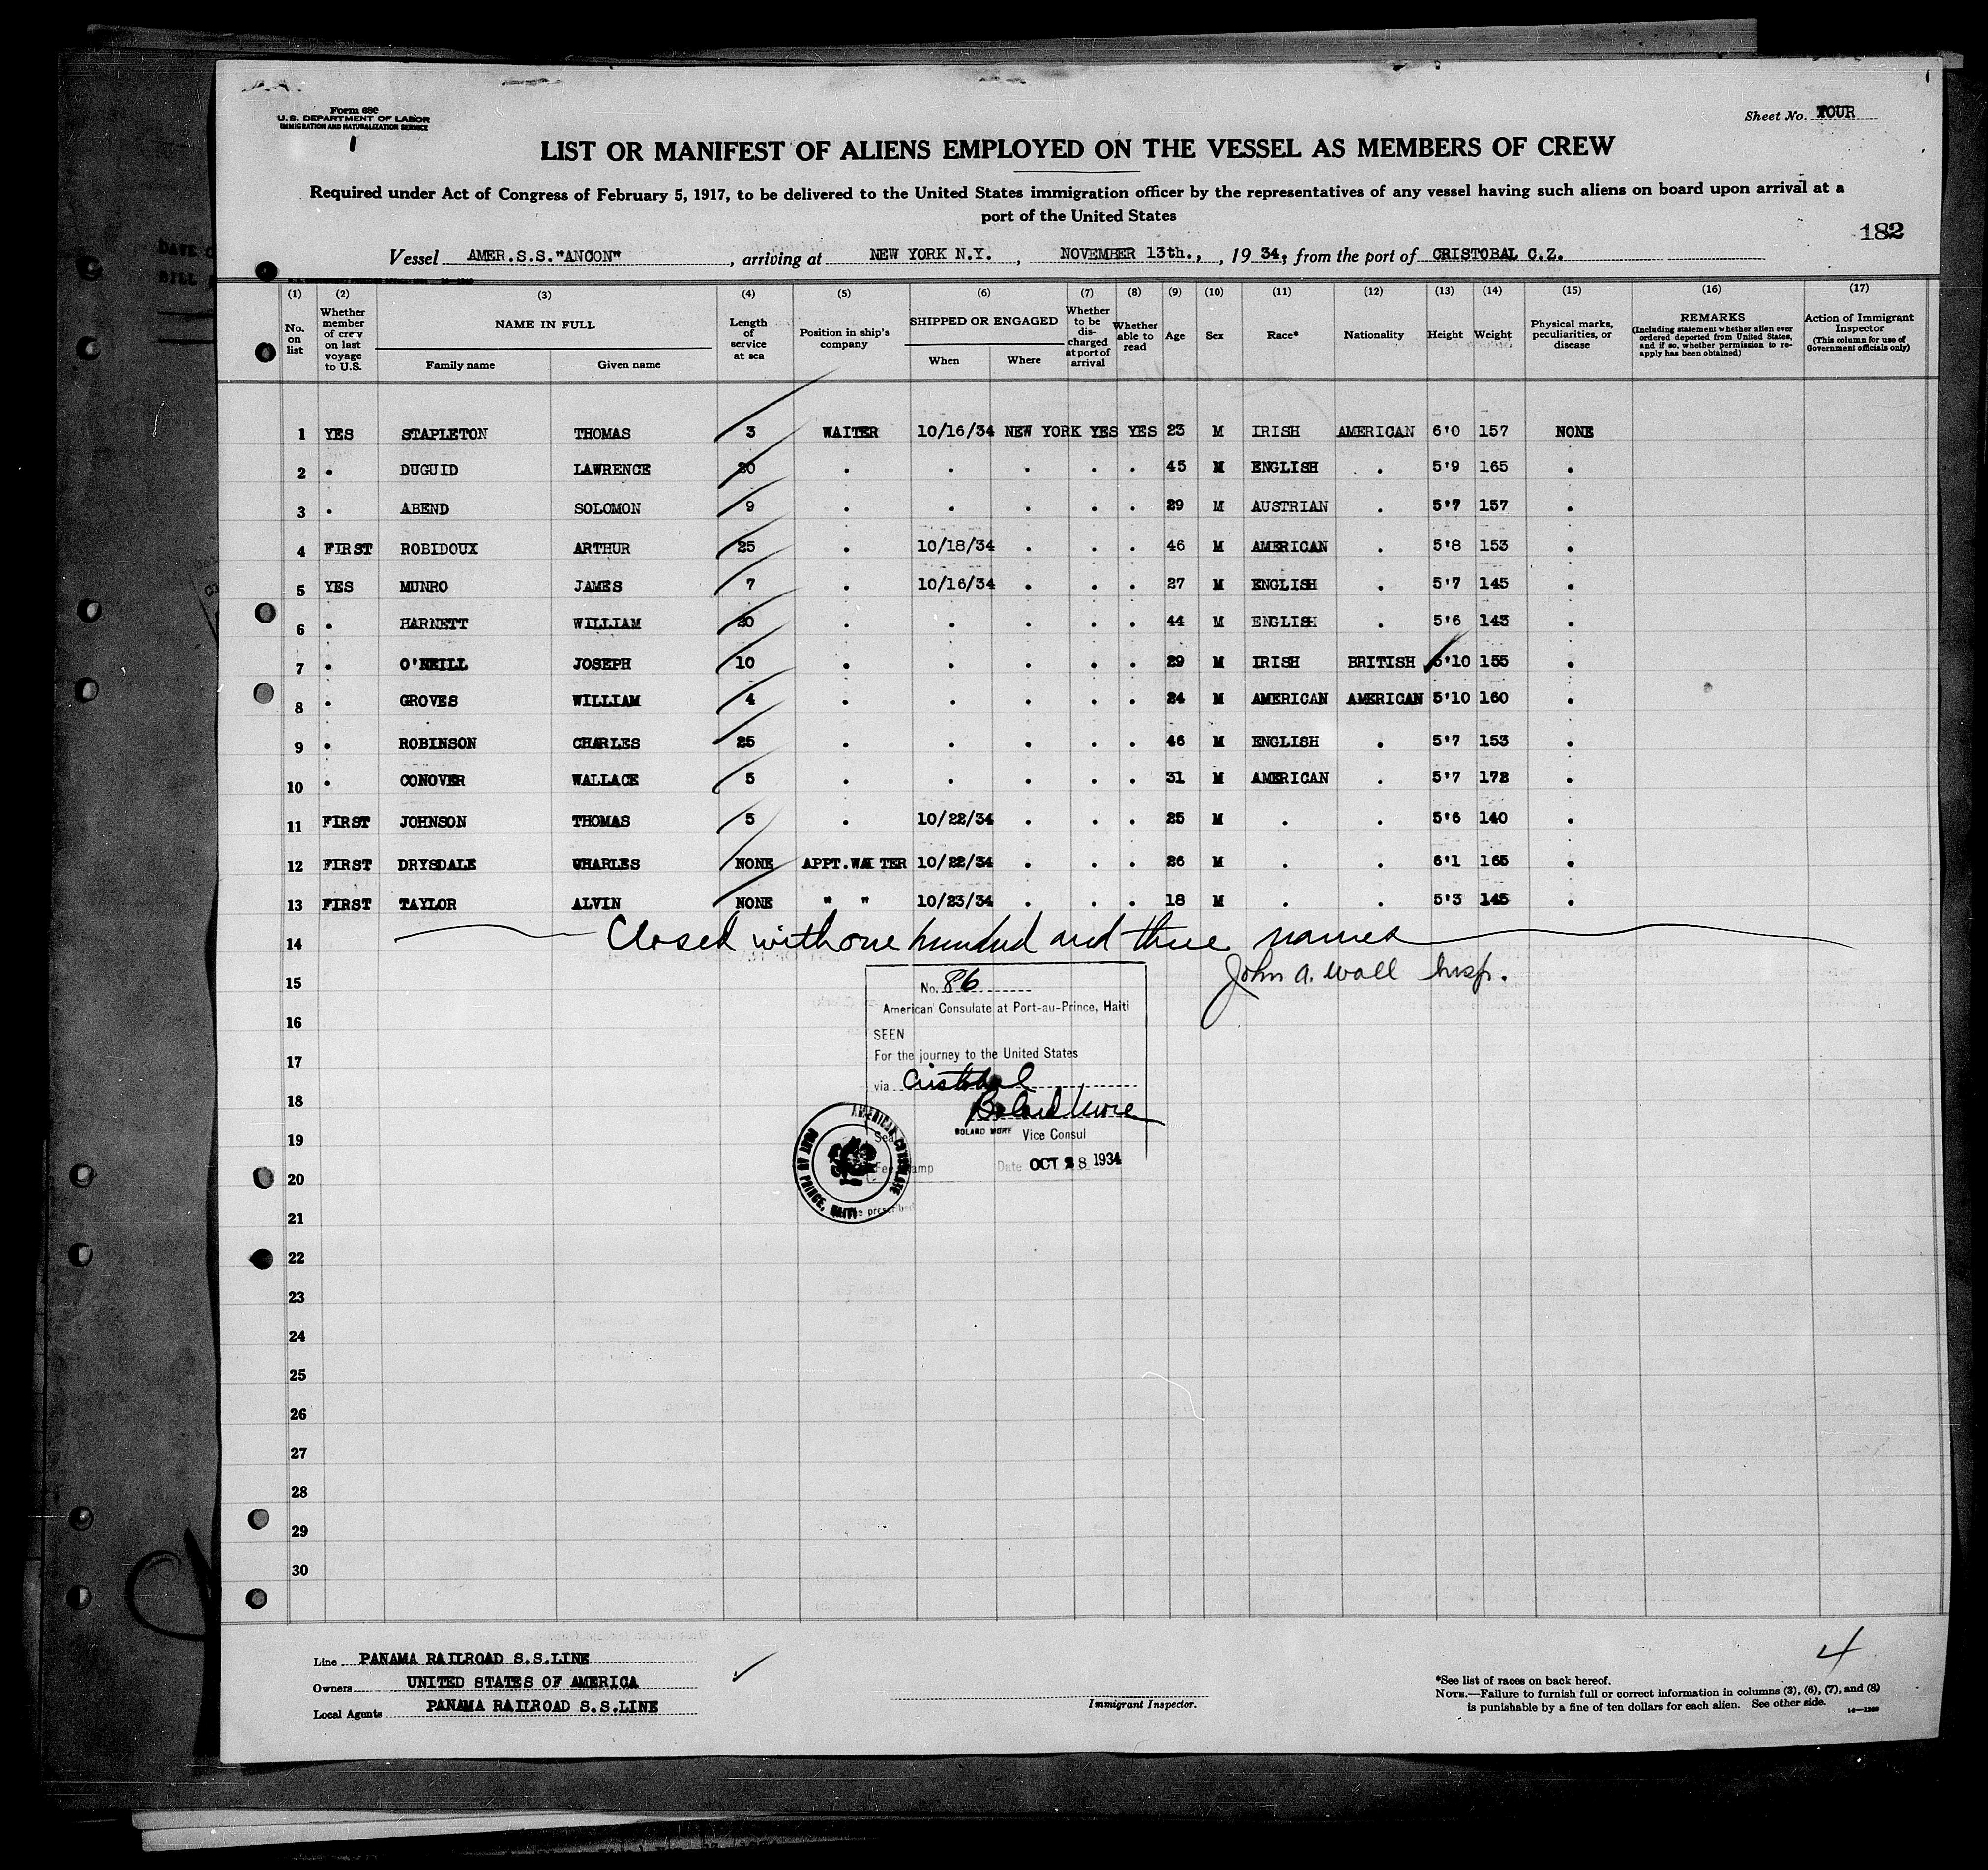 Form 680
U.S. DEPARTMENT OF LABOR
IMMIGRATION AND NATURALIZATION SERVICE
1
Sheet No. FOUR
LIST OR MANIFEST OF ALIENS EMPLOYED ON THE VESSEL AS MEMBERS OF CREW
Required under Act of Congress of February 5, 1917, to be delivered to the United States immigration officer by the representatives of any vessel having such aliens on board upon arrival at a
port of the United States
182
Vessel AMER.S.S."ANCON", arriving at NEW YORK N.Y., NOVEMBER 13th., , 19 34, from the port of CRISTOBAL C.Z.
(1) (2) (3) (4) (5) (6) (7) (8) (9) (10) (11) (12) (13) (14) (15) (16) (17)
No. on list
Whether member of crew on last voyage to U.S.
NAME IN FULL
Family name Given name
Length of service at sea
Position in ship's company
SHIPPED OR ENGAGED
When Where
Whether to be discharged at port of arrival
Whether able to read
Age
Sex
Race*
Nationality
Height
Weight
Physical marks, peculiarities, or disease
REMARKS
(Including statement whether alien ever ordered deported from United States, and if so, whether permission to re-apply has been obtained)
Action of Immigrant Inspector
(This column for use of Government officials only)
1 YES STAPLETON THOMAS 3 WAITER 10/16/34 NEW YORK YES YES 23 M IRISH AMERICAN 6'0 157 NONE
2 . DUGUID LAWRENCE 20 . . . . . 45 M ENGLISH . 5'9 165 .
3 . ABEND SOLOMON 9 . . . . . 29 M AUSTRIAN . 5'7 157 .
4 FIRST ROBIDOUX ARTHUR 25 . 10/18/34 . . . 46 M AMERICAN . 5'8 153 .
5 YES MUNRO JAMES 7 . 10/16/34 . . . 27 M ENGLISH . 5'7 145 .
6 . HARNETT WILLIAM 20 . . . . . 44 M ENGLISH . 5'6 143 .
7 . O'NEILL JOSEPH 10 . . . . . 29 M IRISH BRITISH 5'10 155 .
8 . GROVES WILLIAM 4 . . . . . 24 M AMERICAN AMERICAN 5'10 160 .
9 . ROBINSON CHARLES 25 . . . . . 46 M ENGLISH . 5'7 153 .
10 . CONOVER WALLACE 5 . . . . . 31 M AMERICAN . 5'7 172 .
11 FIRST JOHNSON THOMAS 5 . 10/22/34 . . . 25 M . . 5'6 140 .
12 FIRST DRYSDALE CHARLES NONE APPT.WAITER 10/22/34 . . . 26 M . . 6'1 165 .
13 FIRST TAYLOR ALVIN NONE " " 10/23/34 . . . 18 M . . 5'3 145 .
14 Closed with one hundred and three names
15 John A. Wall Insp.
No. 86
American Consulate at Port-au-Prince, Haiti
16
SEEN
17 For the journey to the United States
via Cristobal
18 Boland More
19 BOLAND MORE Vice Consul
Seal
AMERICAN CONSULATE
PORT AU PRINCE, HAITI
20 Date OCT 28 1934
21
22
23
24
25
26
27
28
29
30
Line PANAMA RAILROAD S.S.LINE
Owners UNITED STATES OF AMERICA
Local Agents PANAMA RAILROAD S.S.LINE
Immigrant Inspector.
4
*See list of races on back hereof.
NOTE.—Failure to furnish full or correct information in columns (3), (6), (7), and (8)
is punishable by a fine of ten dollars for each alien. See other side.